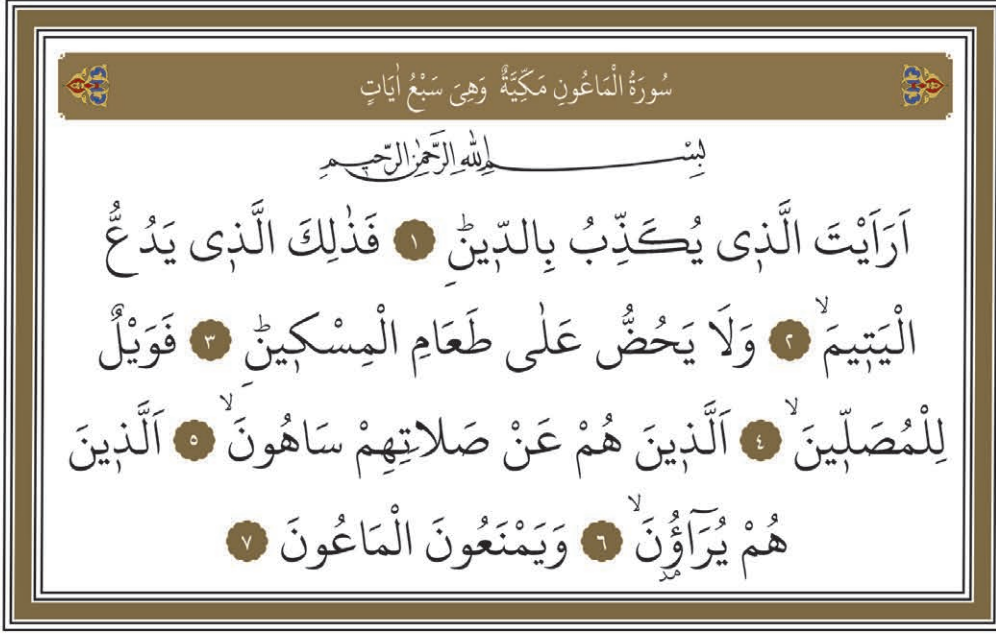 سُورَةُ الْمَاعُونِ مَكِّيَّةٌ وَهِىَ سَبْعُ اٰيَاتٍ
بِسْمِ اللهِ الرَّحْمٰنِ الرَّحِيمِ
اَرَاَيْتَ الَّذٖى يُكَذِّبُ بِالدّٖينِؕ ١ فَذٰلِكَ الَّذٖى يَدُعُّ
الْيَتٖيمَۙ ٢ وَلَا يَحُضُّ عَلٰى طَعَامِ الْمِسْكٖينِؕ ٣ فَوَيْلٌ
لِلْمُصَلّٖينَۙ ٤ اَلَّذٖينَ هُمْ عَنْ صَلَاتِهِمْ سَاهُونَۙ ٥ اَلَّذٖينَ
هُمْ يُرَٓاؤُ۫نَۙ ٦ وَيَمْنَعُونَ الْمَاعُونَ ٧